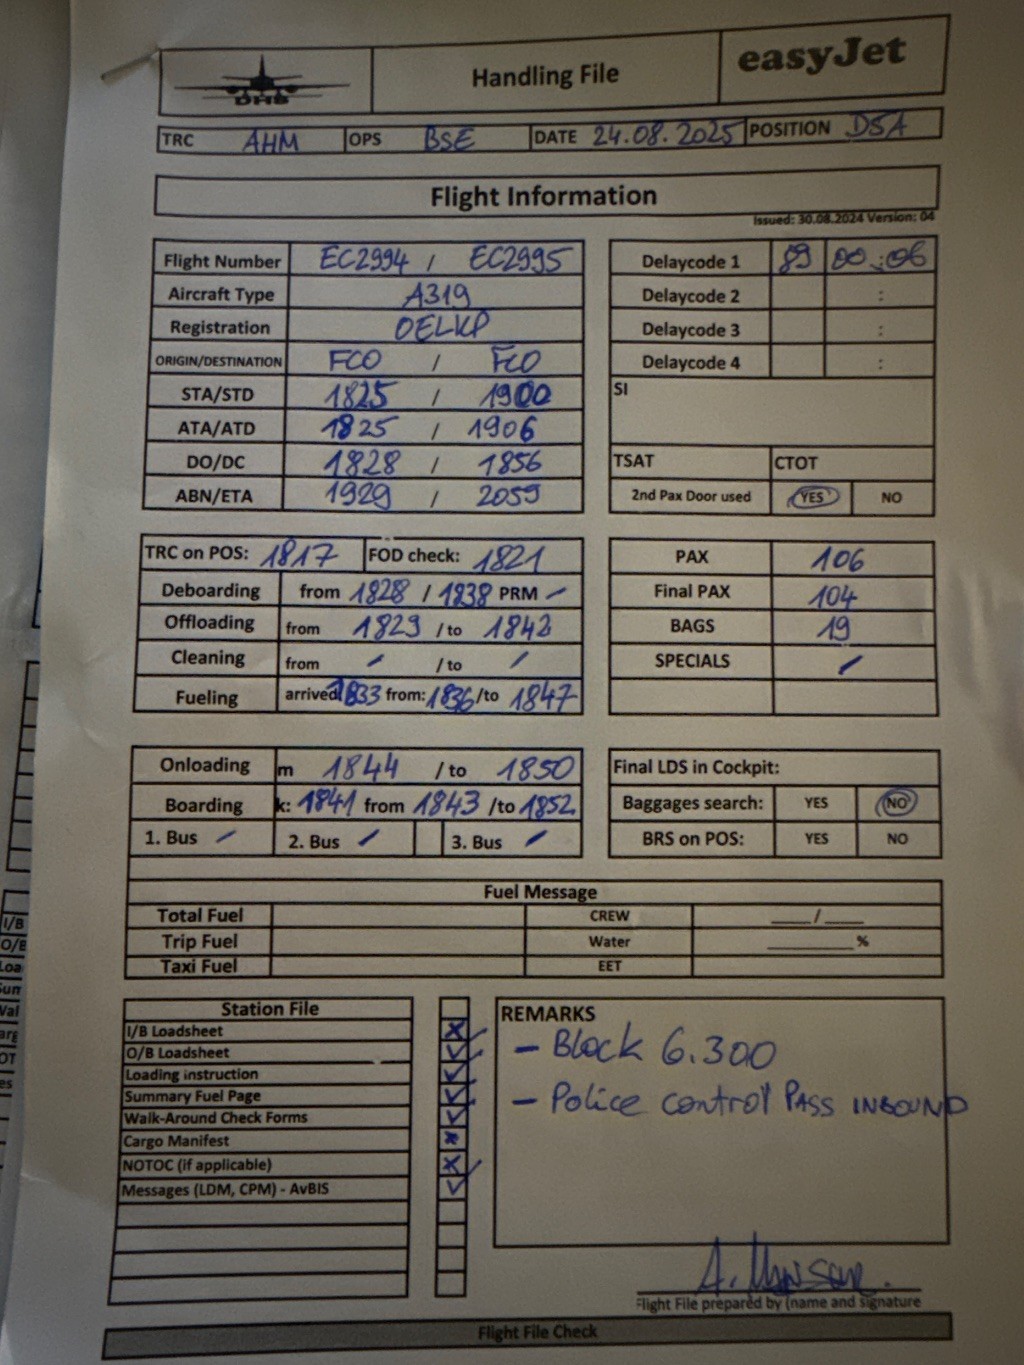 DHS Handling File easyJet
TRC AHM OPS BSE DATE 24.08.2025 POSITION D5A
Flight Information
Issued: 30.08.2024 Version: 04
Flight Number EC2994 / EC2995
Aircraft Type A319
Registration OELKP
ORIGIN/DESTINATION FCO / FCO
STA/STD 1825 / 1900
ATA/ATD 1825 / 1906
DO/DC 1828 / 1856
ABN/ETA 1929 / 2059
Delaycode 1 89 00:06
Delaycode 2 :
Delaycode 3 :
Delaycode 4 :
SI
TSAT CTOT
2nd Pax Door used YES NO
TRC on POS: 1817 FOD check: 1821
Deboarding from 1828 / 1838 PRM –
Offloading from 1829 / to 1842
Cleaning from / to
Fueling arrived 1833 from: 1836 /to 1847
PAX 106
Final PAX 104
BAGS 19
SPECIALS /
Onloading m 1844 / to 1850
Boarding k: 1841 from 1843 /to 1852
1. Bus / 2. Bus / 3. Bus /
Final LDS in Cockpit:
Baggages search: YES NO
BRS on POS: YES NO
Fuel Message
Total Fuel CREW ___/___
Trip Fuel Water ______%
Taxi Fuel EET
Station File
I/B Loadsheet
O/B Loadsheet
Loading instruction
Summary Fuel Page
Walk-Around Check Forms
Cargo Manifest
NOTOC (if applicable)
Messages (LDM, CPM) - AvBIS
REMARKS
– Block 6.300
– Police control PASS INBOUND
Flight File prepared by (name and signature
Flight File Check
I/B
O/B